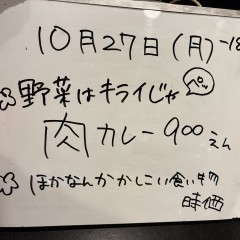 10月27日(月)
野菜はキライじゃ
ペッ
肉カレー900えん
ほかなんかかしこい食い物
時価